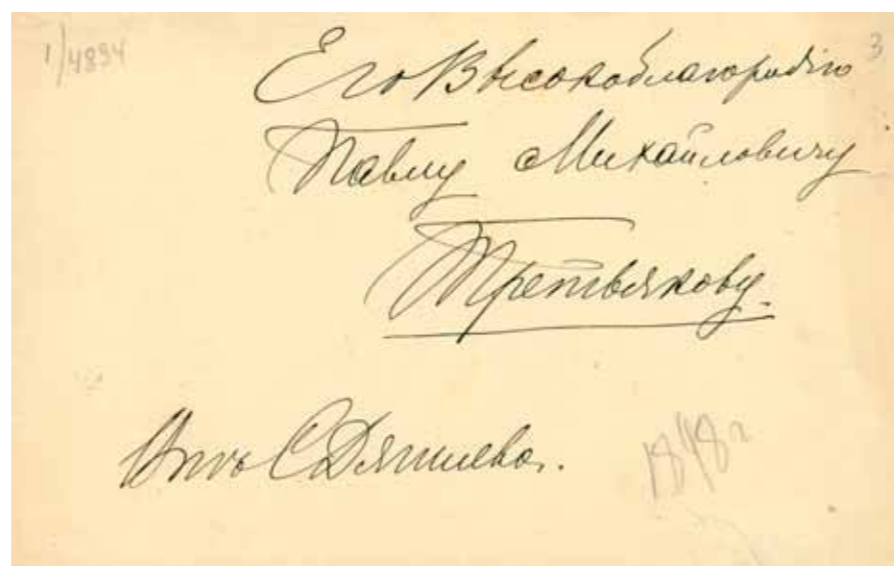 1/4894
3
Его Высокоблагородію
Павлу Михайловичу
Третьякову.
Отъ С Дягилева.
1898 г